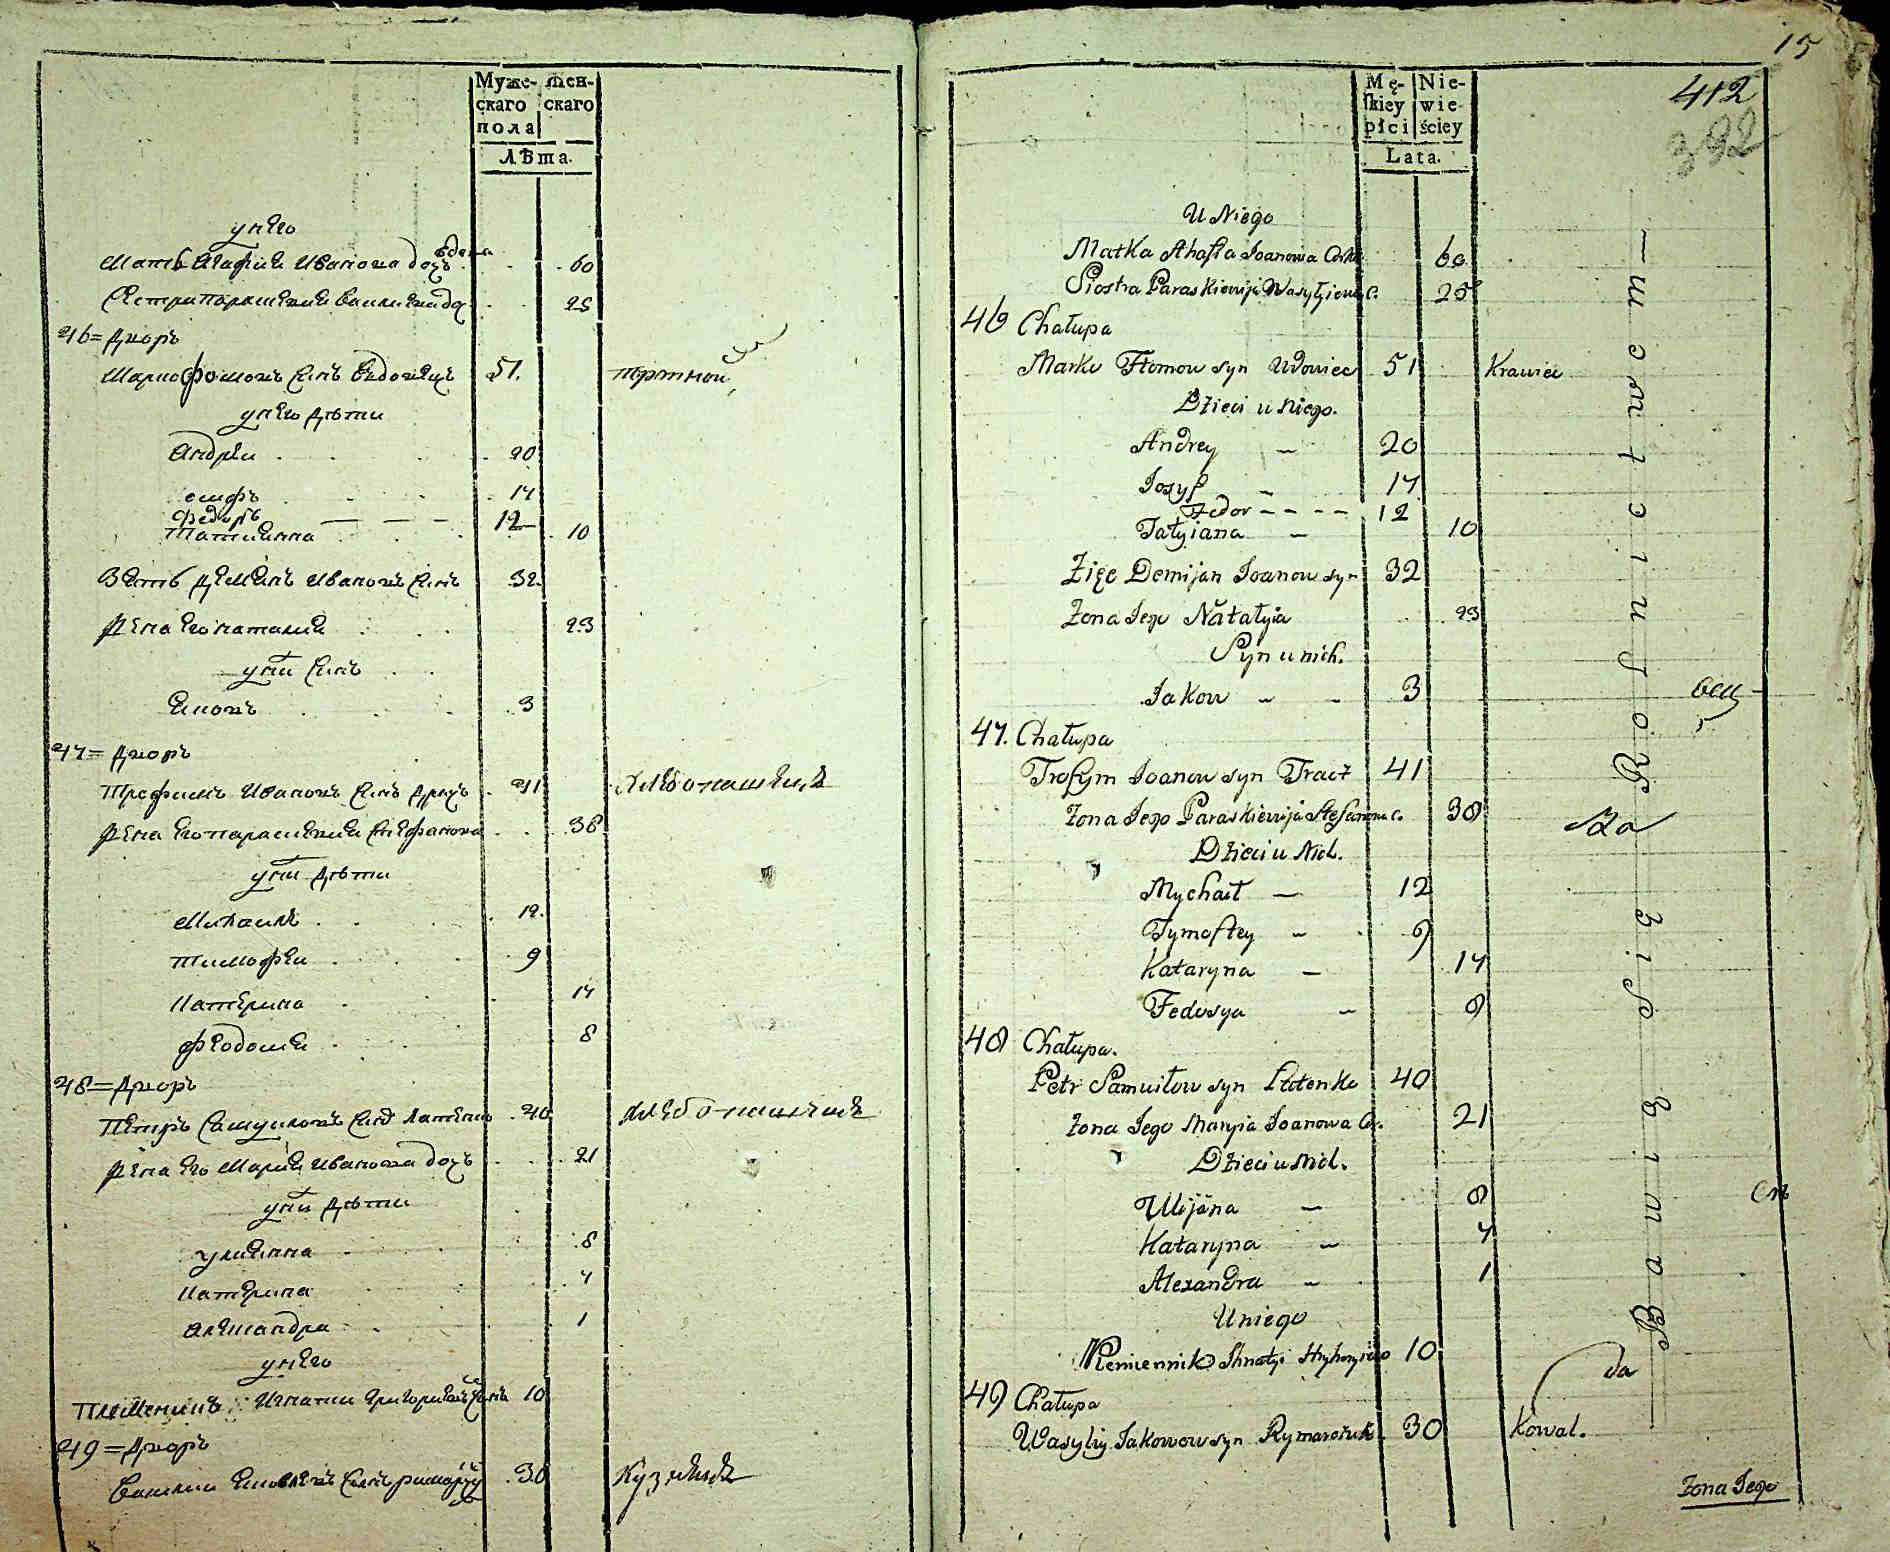 Муже-
скаго
пола
Жен-
скаго
Лѣта.
у него
вдова
Мать Агафия Иванова дочь 60
Сестра Параскевия Василиева до 25
46 = Дворъ
Марко Фомовъ сынъ вдовецъ 51. портной
у него дѣти
Андрей 20
Осифъ 14
Федоръ — — — 12
Татиянна 10
Зять Демянъ Ивановъ сынъ 32
Жена его Наталия 23
у них сынъ
Яковъ 3
47 = Дворъ
Трофимъ Ивановъ сынъ 41 хлебопашецъ
Жена его Параскевия Стефанова 38
у них дѣти
Михаилъ 12
Тимофей 9
Катерина 14
Феодосия 8
48 = Дворъ
Петръ Самуиловъ сынъ 40 хлебопашецъ
Жена его Мария Иванова дочь 21
у них дѣти
Улиянна 8
Катерина 4
Александра 1
у него
Племенникъ Игнатий Григориевъ сынъ 10
49 = Дворъ
Василий Яковлевъ сынъ Римарчукъ 30 Кузнецъ
15
412
392
Mę-
skiey
płci
Nie-
wie-
ściey
Lata.
U Niego
Matka Ahafia Joanowa Corka 60
Siostra Paraskiewija Wasylijewa C. 25
46 Chałupa
Marko Fłomow syn Wdowiec 51 Krawiec
Dzieci u Niego.
Andrey – 20
Josyf – 14
Fedor – – – – 12
Tatyiana – 10
Zięc Demijan Joanow syn 32
Zona Jego Natałyia 23
Syn u nich.
Jakow – – 3
47. Chałupa
Trofym Joanow syn Tracz 41
Zona Jego Paraskiewija Stefanowa C. 38
Dzieci u Nich.
Mychaił – 12
Tymoftey – 9
Kataryna – 14
Fedosya – 8
48 Chałupa.
Petr Samuiłow syn 40
Zona Jego Maryia Joanowa Co. 21
Dzieci u Nich.
Ulijana – 8
Kataryna – 4
Alexandra – 1
U niego
Plemiennik Ihnatyi Hryhoryiew 10
49 Chałupa
Wasylyi Jakowow syn Rymarczuk 30 Kowal.
Zona Jego